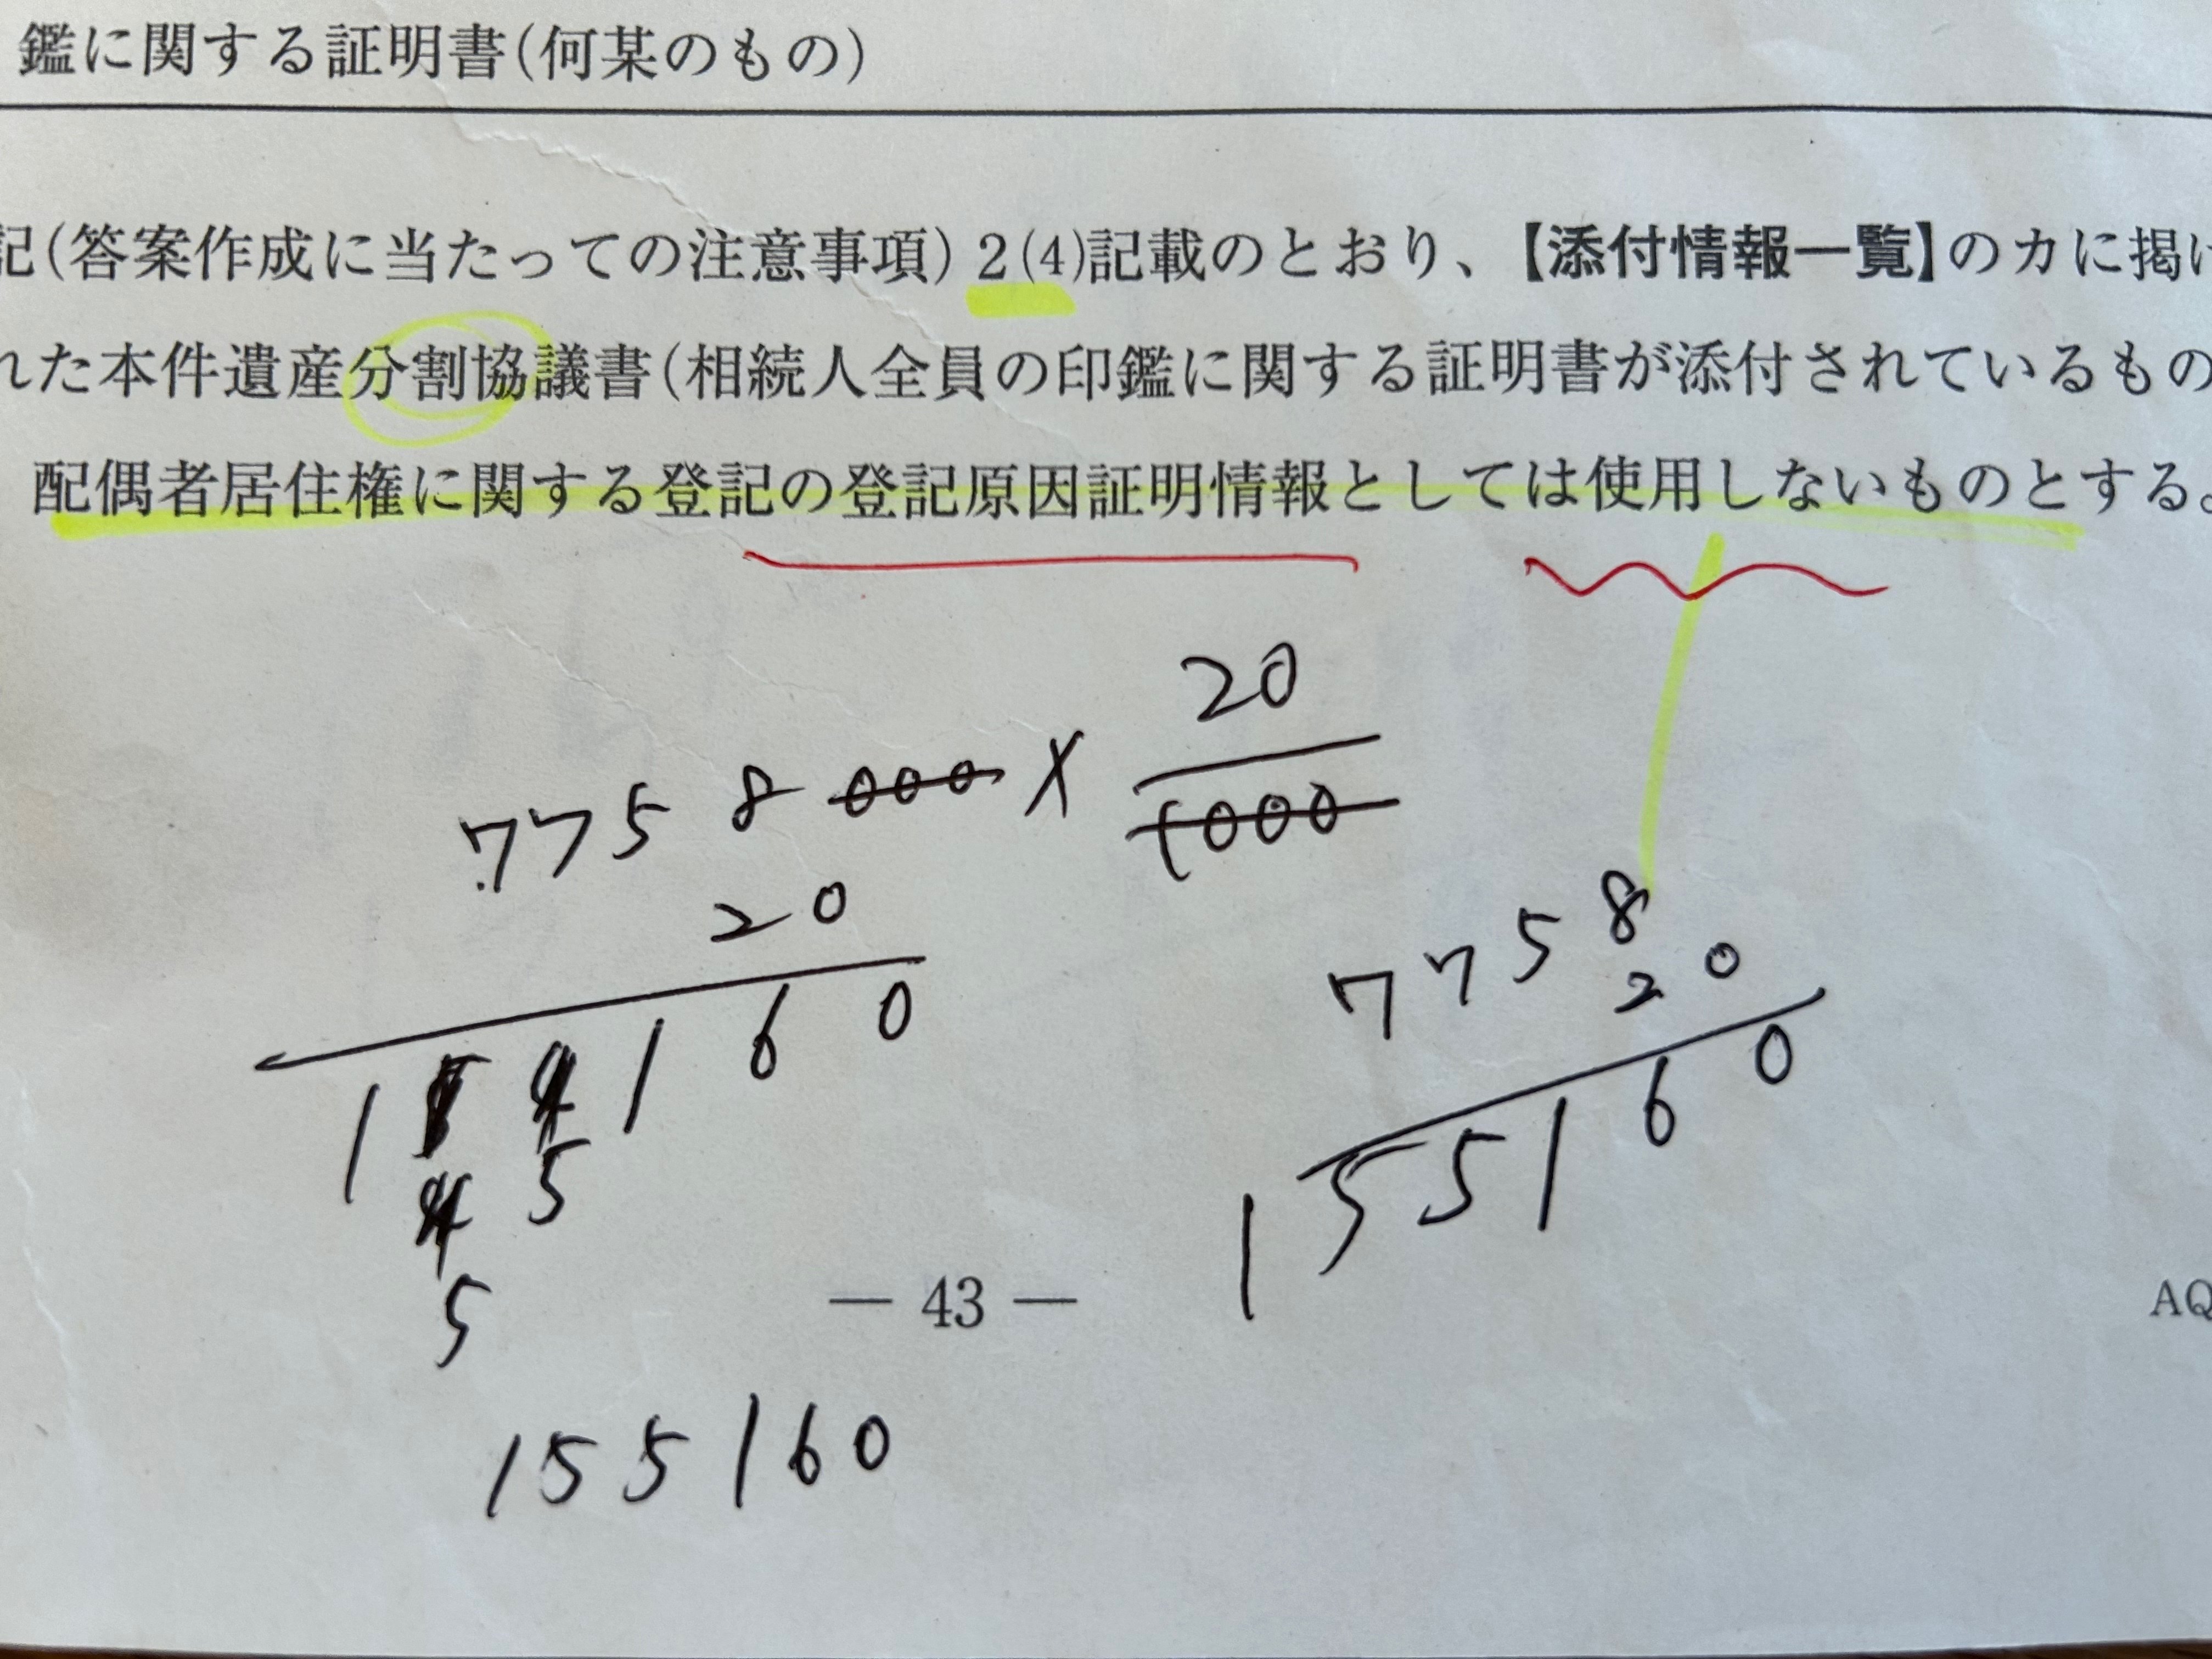 鑑に関する証明書(何某のもの)
記(答案作成に当たっての注意事項) 2(4)記載のとおり、【添付情報一覧】のカに掲げ
れた本件遺産分割協議書(相続人全員の印鑑に関する証明書が添付されているもの
配偶者居住権に関する登記の登記原因証明情報としては使用しないものとする。
7758000 × 20/1000
20
1 1 6 0
5
5
155160
7758
20
155160
— 43 —
AQ